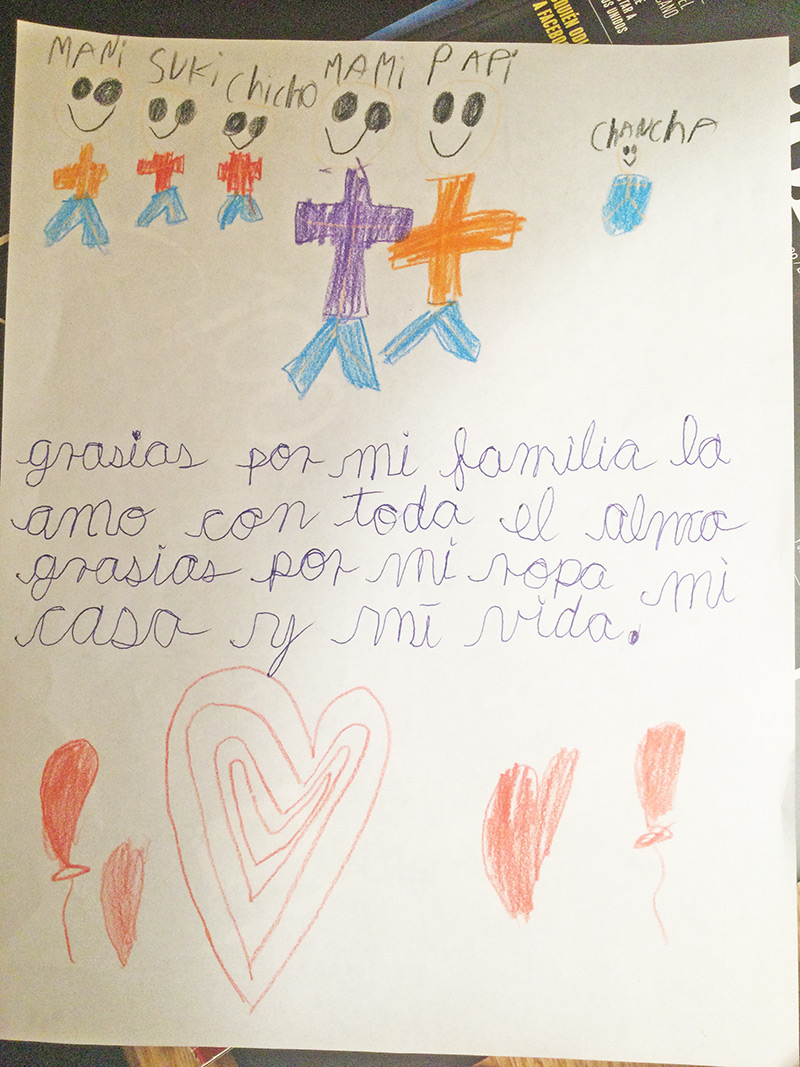 MANi SUKi Chicho MAMi PAPi
ChANchA
grasias por mi familia la
amo con toda el alma
grasias por mi ropa mi
casa y mi vida.